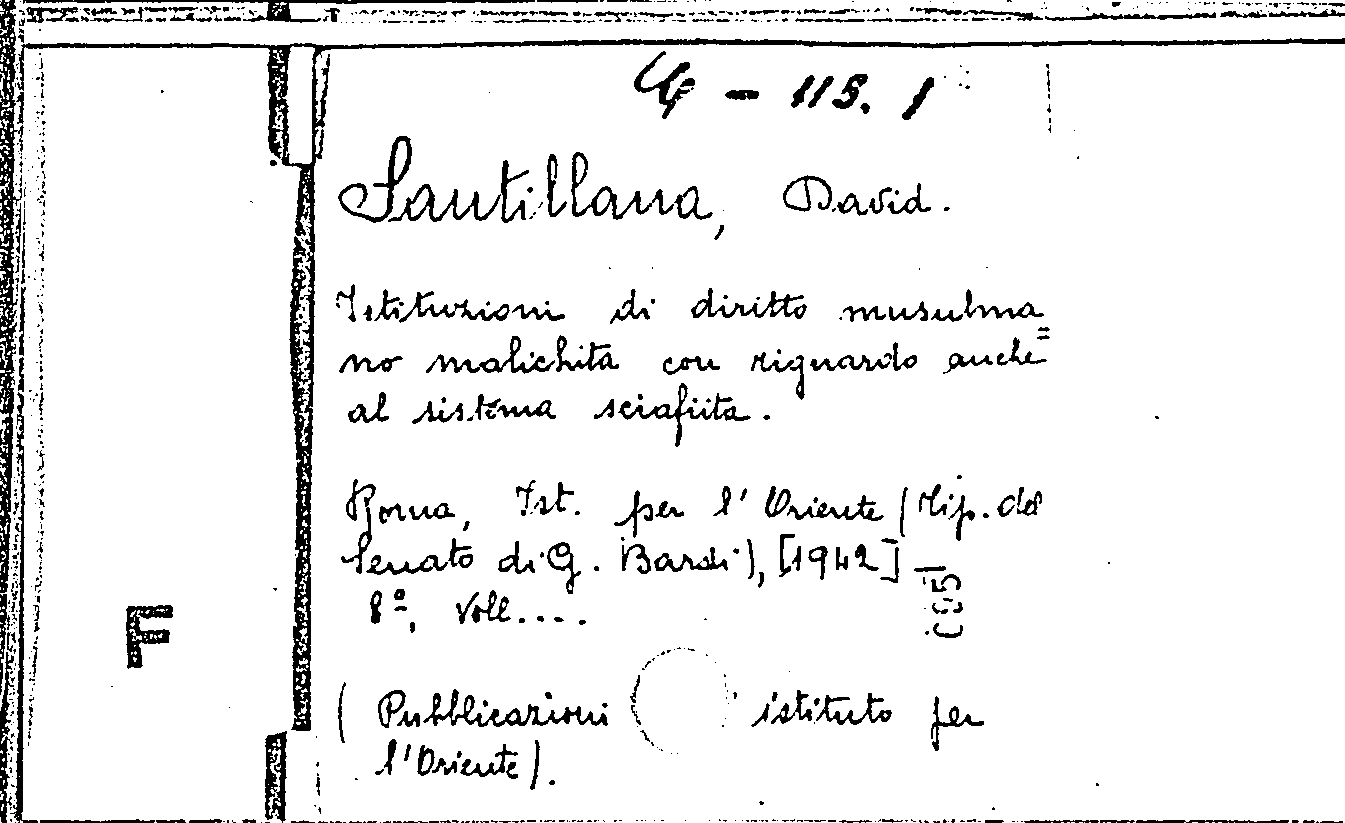 - 115. 1
Santillana, David.
Istituzioni di diritto musulma=
no malichita con riguardo anche
al sistema sciafiita.
Roma, Ist. per l'Oriente (Tip. del
Senato di G. Bardi), [1942]
8º, Voll....
F
(Pubblicazioni istituto per
l'Oriente).